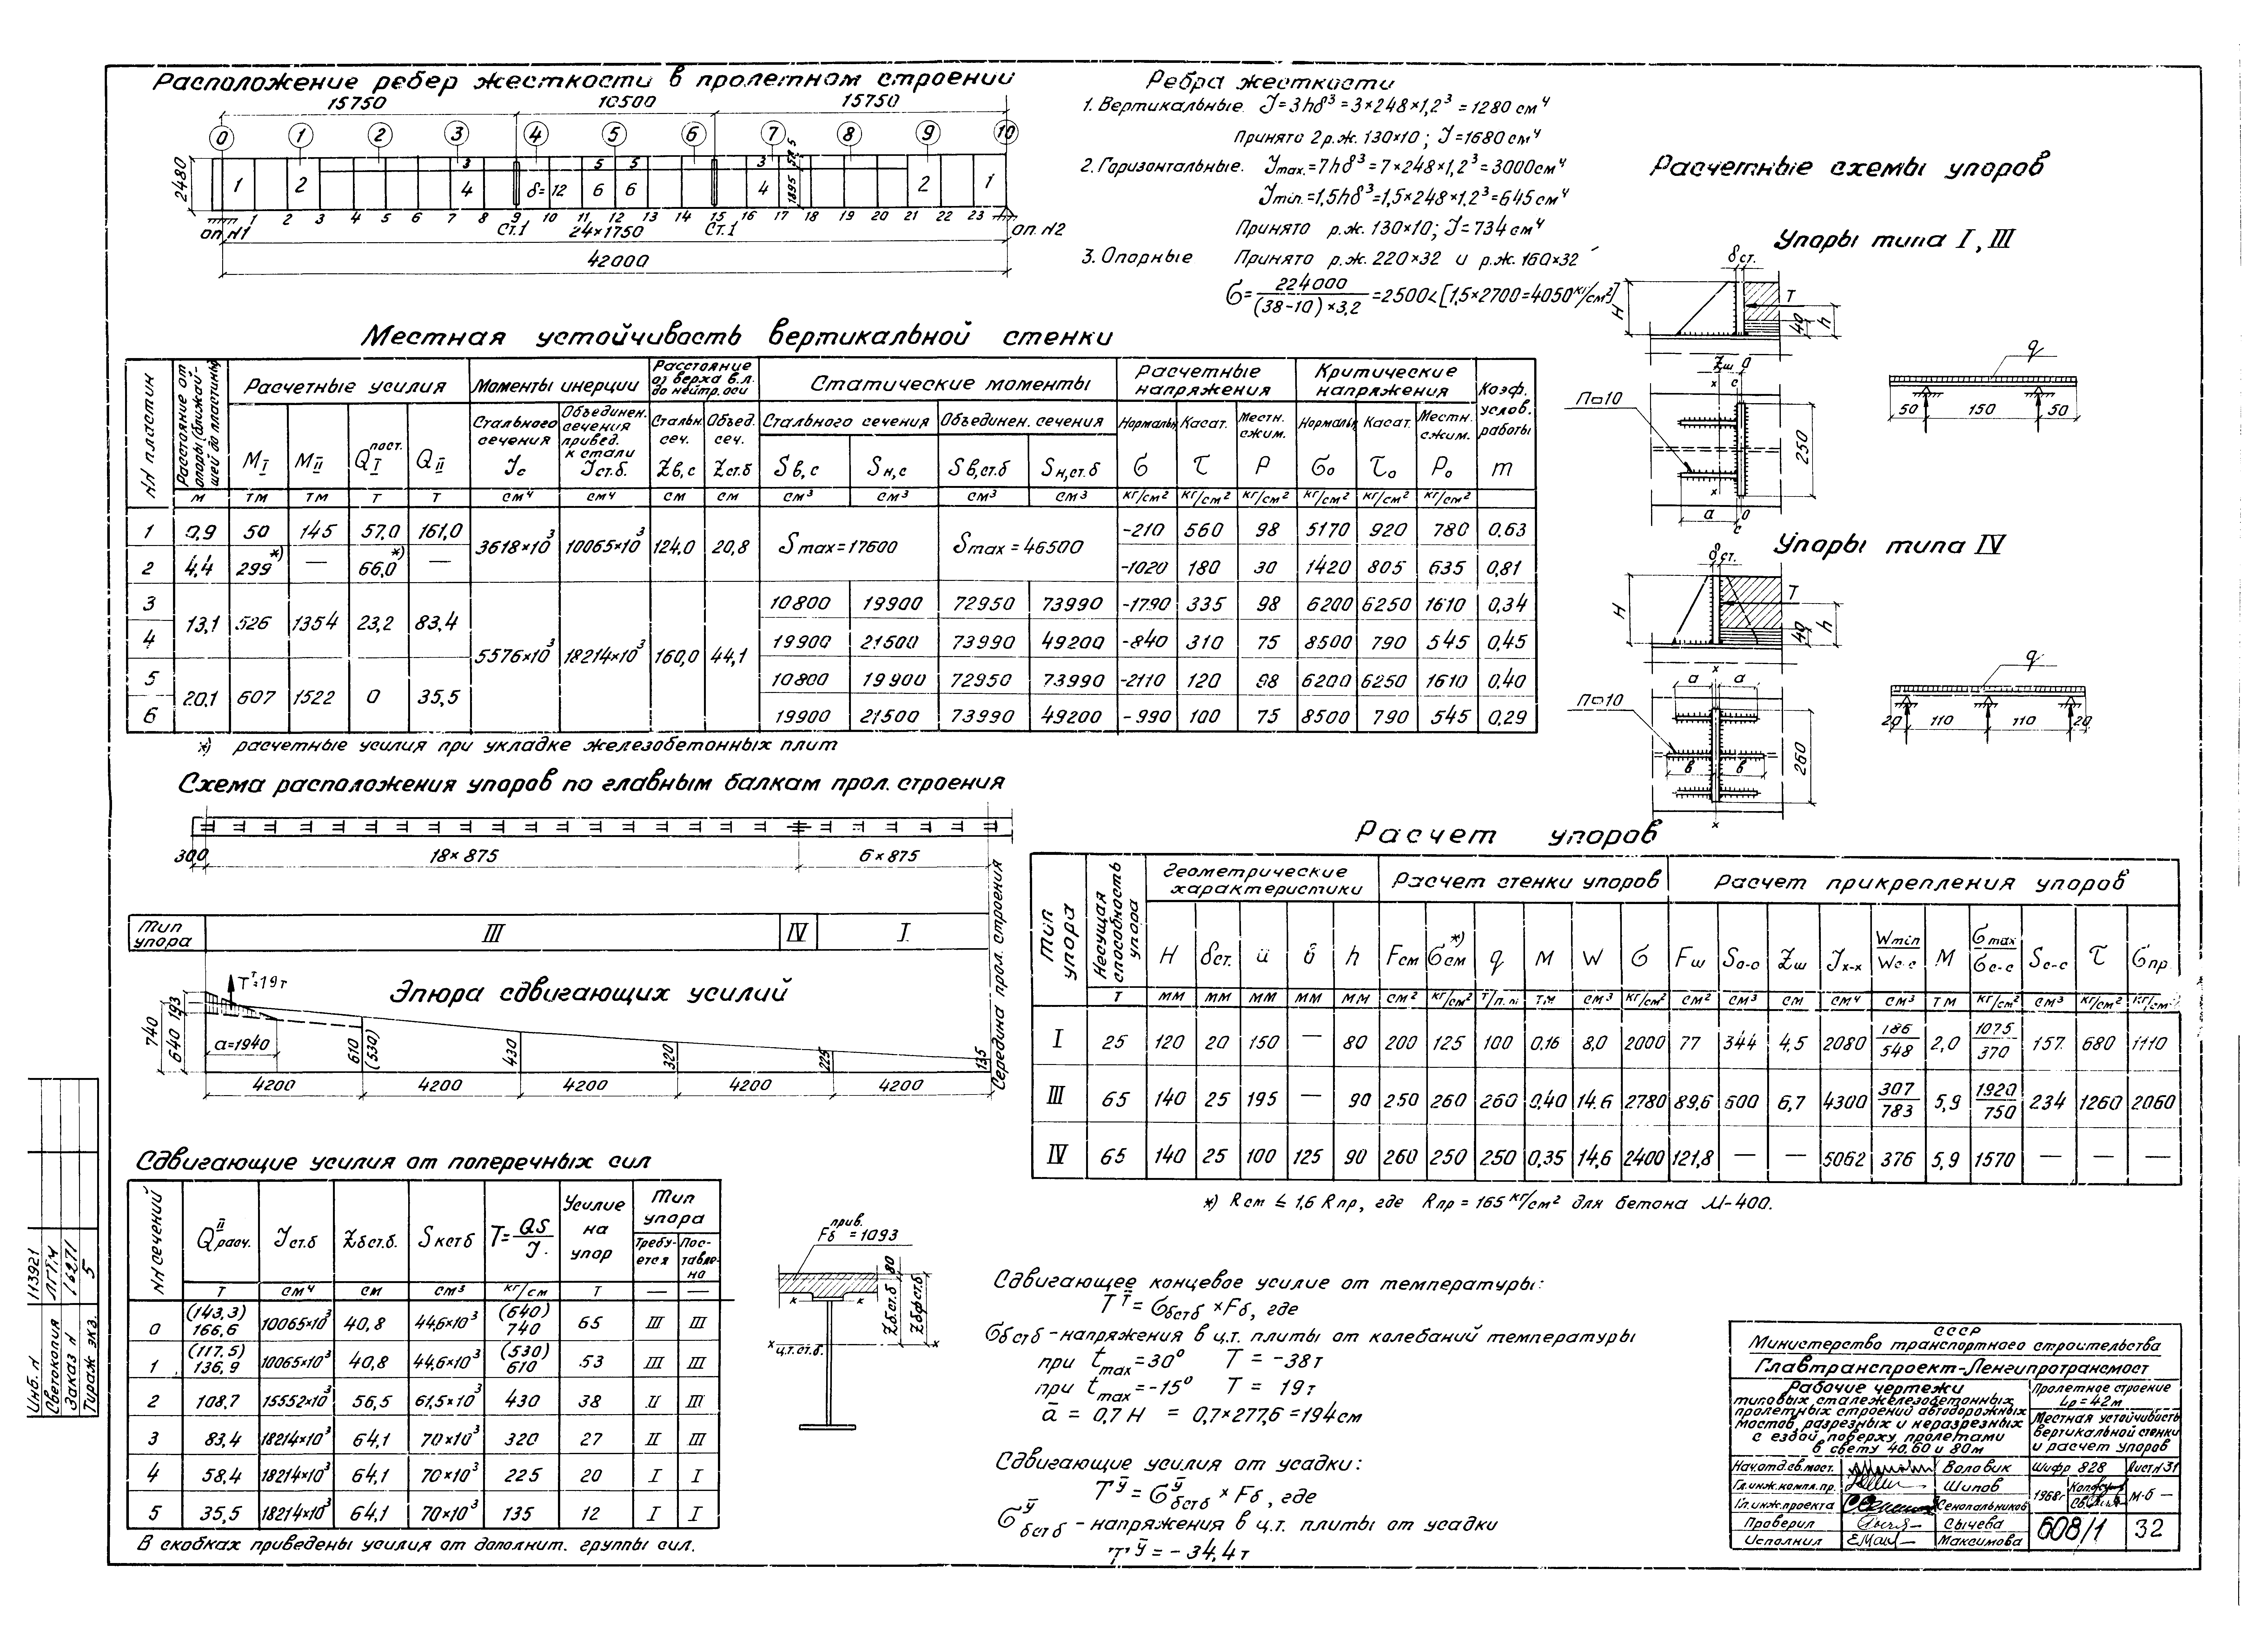 Расположение ребер жесткости в пролетном строении
15750 10500 15750
0 1 2 3 4 5 6 7 8 9 10
2480 1 2 3 4 δ=12 5 5 6 6 3 4 1895 2 1
1 2 3 4 5 6 7 8 9 10 11 12 13 14 15 16 17 18 19 20 21 22 23
оп.N1 Ст.1 24×1750 Ст.1 оп.N2
42000
Ребра жесткости
1. Вертикальные. J=3hδ³=3×248×1,2³=1280 см⁴
Принято 2 р.ж. 130×10; J=1680 см⁴
2. Горизонтальные. Jmax.=7hδ³=7×248×1,2³=3000 см⁴
Jmin.=1,5hδ³=1,5×248×1,2³=645 см⁴
Принято р.ж. 130×10; J=734 см⁴
3. Опорные Принято р.ж. 220×32 и р.ж. 160×32
σ=224000/(38-10)×3,2=2500<[1,5×2700=4050 кг/см²]
Расчетные схемы упоров
Упоры типа I, III
δст.
H T 40 h
Zш
x c
П▭10
a c
250
x
q
50 150 50
Упоры типа IV
δст.
H T 40 h
x
a a
П▭10
в в
260
x
q
20 110 110 20
Местная устойчивость вертикальной стенки
NN пластин
Расстояние от опоры (ближайшей) до пластины
Расчетные усилия
Моменты инерции
Расстояние от верха в.л. до нейтр. оси
Статические моменты
Расчетные напряжения
Критические напряжения
Коэф. услов. работы
Стального сечения Объединен. сечения привед. к стали Стальн. сеч. Объед. сеч. Стального сечения Объединен. сечения Нормальн. Касат. Местн. сжим. Нормальн. Касат. Местн. сжим.
M I M II Q I пост. Q II Jс Jст.б. Zв,с Zст.б Sв,с Sн,с Sв,ст.б Sн,ст.б σ τ P σ₀ τ₀ P₀ m
м тм тм т т см⁴ см⁴ см см см³ см³ см³ см³ кг/см² кг/см² кг/см² кг/см² кг/см² кг/см²
1 0,9 50 145 57,0 161,0 3618×10³ 10065×10³ 124,0 20,8 Smax=17600 Smax=46500 -210 560 98 5170 920 780 0,63
2 4,4 299*) — 66,0*) — -1020 180 30 1420 805 635 0,81
3 13,1 526 1354 23,2 83,4 5576×10³ 18214×10³ 160,0 44,1 10800 19900 72950 73990 -1790 335 98 6200 6250 1610 0,34
4 19900 21500 73990 49200 -840 310 75 8500 790 545 0,45
5 20,1 607 1522 0 35,5 10800 19900 72950 73990 -2110 120 98 6200 6250 1610 0,40
6 19900 21500 73990 49200 -990 100 75 8500 790 545 0,29
*) расчетные усилия при укладке железобетонных плит
Схема расположения упоров по главным балкам прол. строения
300 18×875 6×875
Середина прол. строения
Тип упора III IV I
Эпюра сдвигающих усилий
Tᵀ=19т
740 640 193
a=1940
610 (530) 430 320 225 135
4200 4200 4200 4200 4200
Расчет упоров
Тип упора
Несущая способность упора
Геометрические характеристики
Расчет стенки упоров
Расчет прикрепления упоров
H δст. а в h Fсм σсм*) q M W σ Fш So-o Zш Jx-x Wmin/Wc-c M σmax/σc-c Sc-c τ σпр
т мм мм мм мм мм см² кг/см² т/п.м тм см³ кг/см² см² см³ см см⁴ см³ тм кг/см² см³ кг/см² кг/см²
I 25 120 20 150 — 80 200 125 100 0.16 8,0 2000 77 344 4,5 2080 186/548 2,0 1075/370 157. 680 1110
III 65 140 25 195 — 90 250 260 260 0,40 14.6 2780 89,6 500 6,7 4300 307/783 5,9 1920/750 234 1260 2060
IV 65 140 25 100 125 90 260 250 250 0,35 14,6 2400 121,8 — — 5062 376 5,9 1570 — — —
*) Rсм ≤ 1,6 Rпр, где Rпр = 165 кг/см² для бетона М-400.
Сдвигающие усилия от поперечных сил
NN сечений
Q II расч. Jст.б Zбст.б. Sкстб T=QS/J. Усилие на упор Тип упора
Требуется Поставлено
т см⁴ см см³ кг/см т — —
0 (143,3) 166,6 10065×10³ 40,8 44,6×10³ (640) 740 65 III III
1 (117.5) 136,9 10065×10³ 40,8 44,6×10³ (530) 610 53 III III
2 108,7 15552×10³ 56,5 61,5×10³ 430 38 II III
3 83,4 18214×10³ 64,1 70×10³ 320 27 II III
4 58,4 18214×10³ 64,1 70×10³ 225 20 I I
5 35,5 18214×10³ 64,1 70×10³ 135 12 I I
В скобках приведены усилия от дополнит. группы сил.
Fб прив. = 1093
80
к к
Zбст.б Zбфст.б
x ц.т.ст.б. x
Сдвигающее концевое усилие от температуры:
Tᵀ = σбстб × Fб, где
σбстб - напряжения в ц.т. плиты от колебаний температуры
при tmax=30° T = -38т
при tmax=-15° T = 19т
a = 0,7 H = 0,7×277,6 = 194см
Сдвигающие усилия от усадки:
Tʸ = σʸбстб × Fб, где
σʸбстб - напряжения в ц.т. плиты от усадки
Tʸ = - 34,4 т
СССР
Министерство транспортного строительства
Главтранспроект-Ленгипротрансмост
Рабочие чертежи
типовых сталежелезобетонных
пролетных строений автодорожных
мостов, разрезных и неразрезных
с ездой поверху пролетами
в свету 40,60 и 80м
Пролетное строение
Lр = 42м
Местная устойчивость
вертикальной стенки
и расчет упоров
Нач.отд.св.мост. Воловик Шифр 828 Лист N31
Гл.инж.компл.пр. Шипов
Гл.инж.проекта 1968г М-б —
Проверил Сычева 608/1 32
Исполнил Максимова
Инв. N 113921
Светокопия
Заказ N 16271
Тираж экз. 5